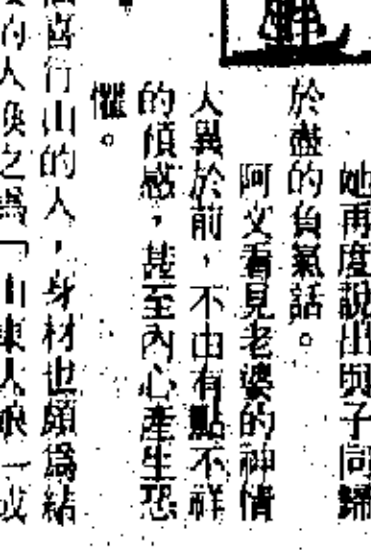 她再度說出與子同歸
於盡的負氣話。
阿文看見老婆的神情
大異於前，不由有點不祥
的傾感，甚至內心產生恐
懼。
喜行山的人，身材也頗為結
的人喚之為「山東大娘」或